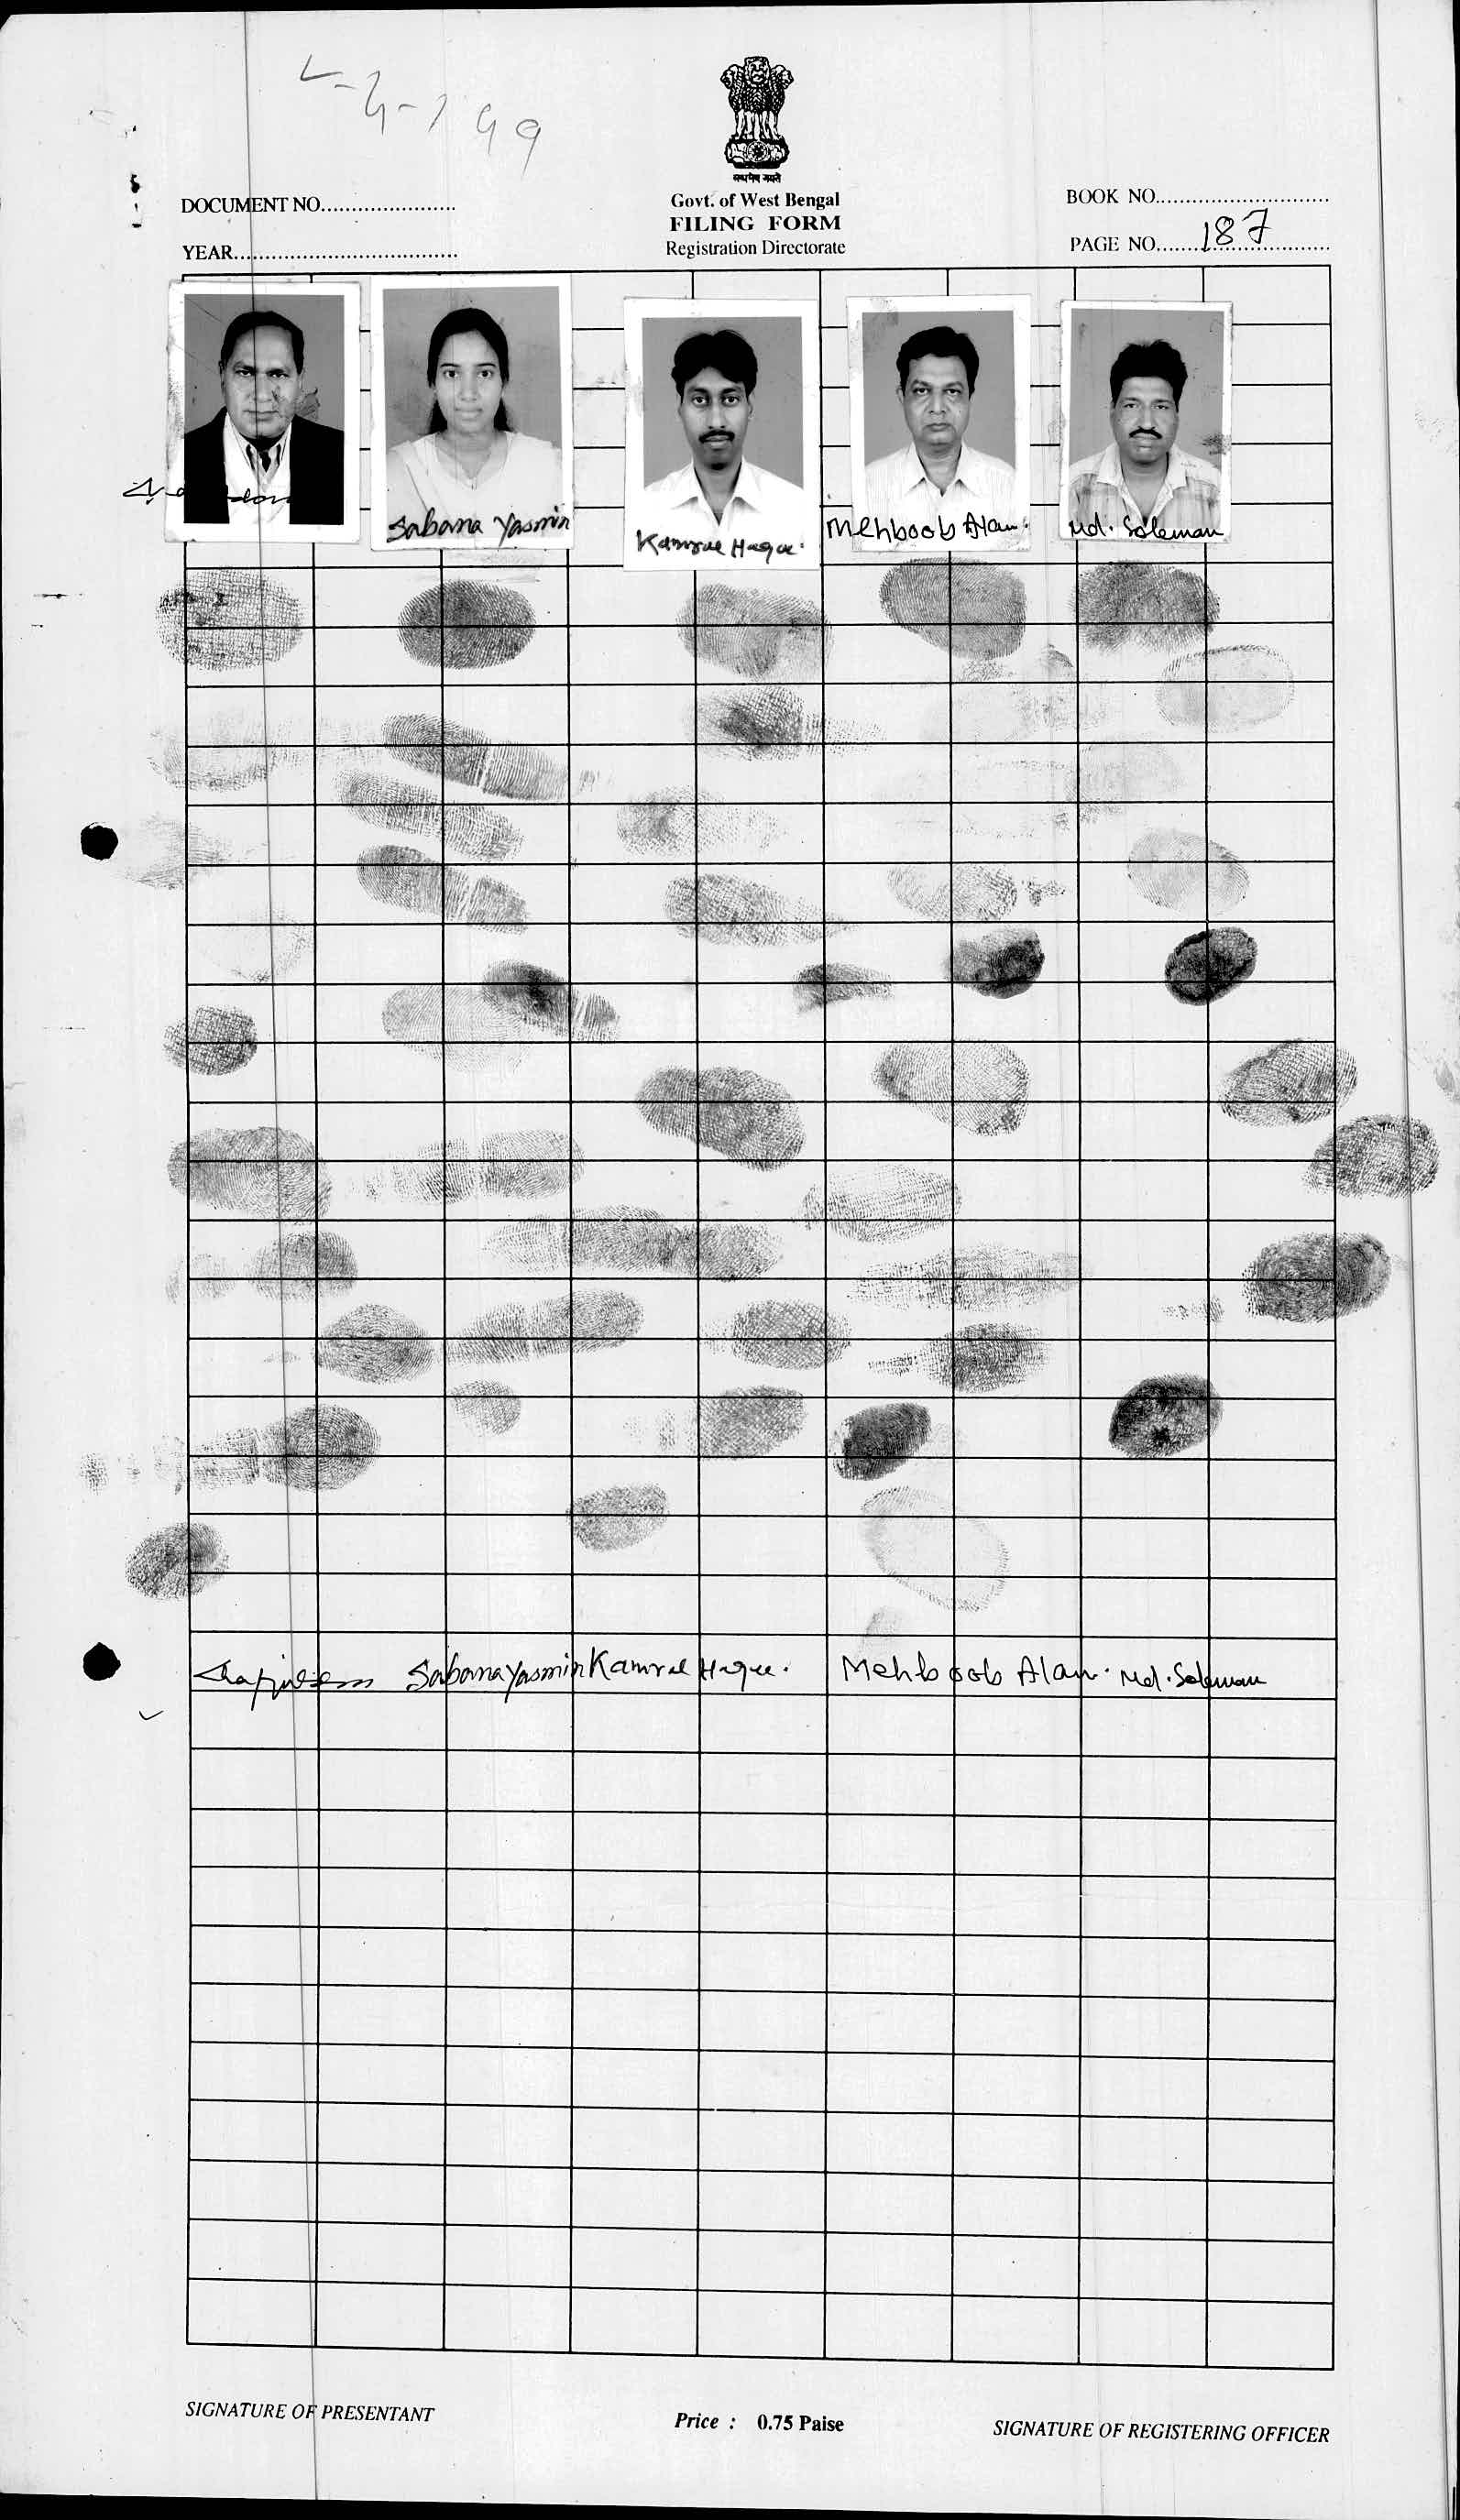 सत्यमेव जयते
DOCUMENT NO......................
YEAR.....................................
Govt. of West Bengal
FILING FORM
Registration Directorate
BOOK NO............................
PAGE NO........187..............
Sabana Yasmin
Kamrul Haque.
Mehboob Alam.
Md. Soleman
Sabana Yasmin Kamrul Haque. Mehboob Alam. Md. Soleman
SIGNATURE OF PRESENTANT
Price : 0.75 Paise
SIGNATURE OF REGISTERING OFFICER